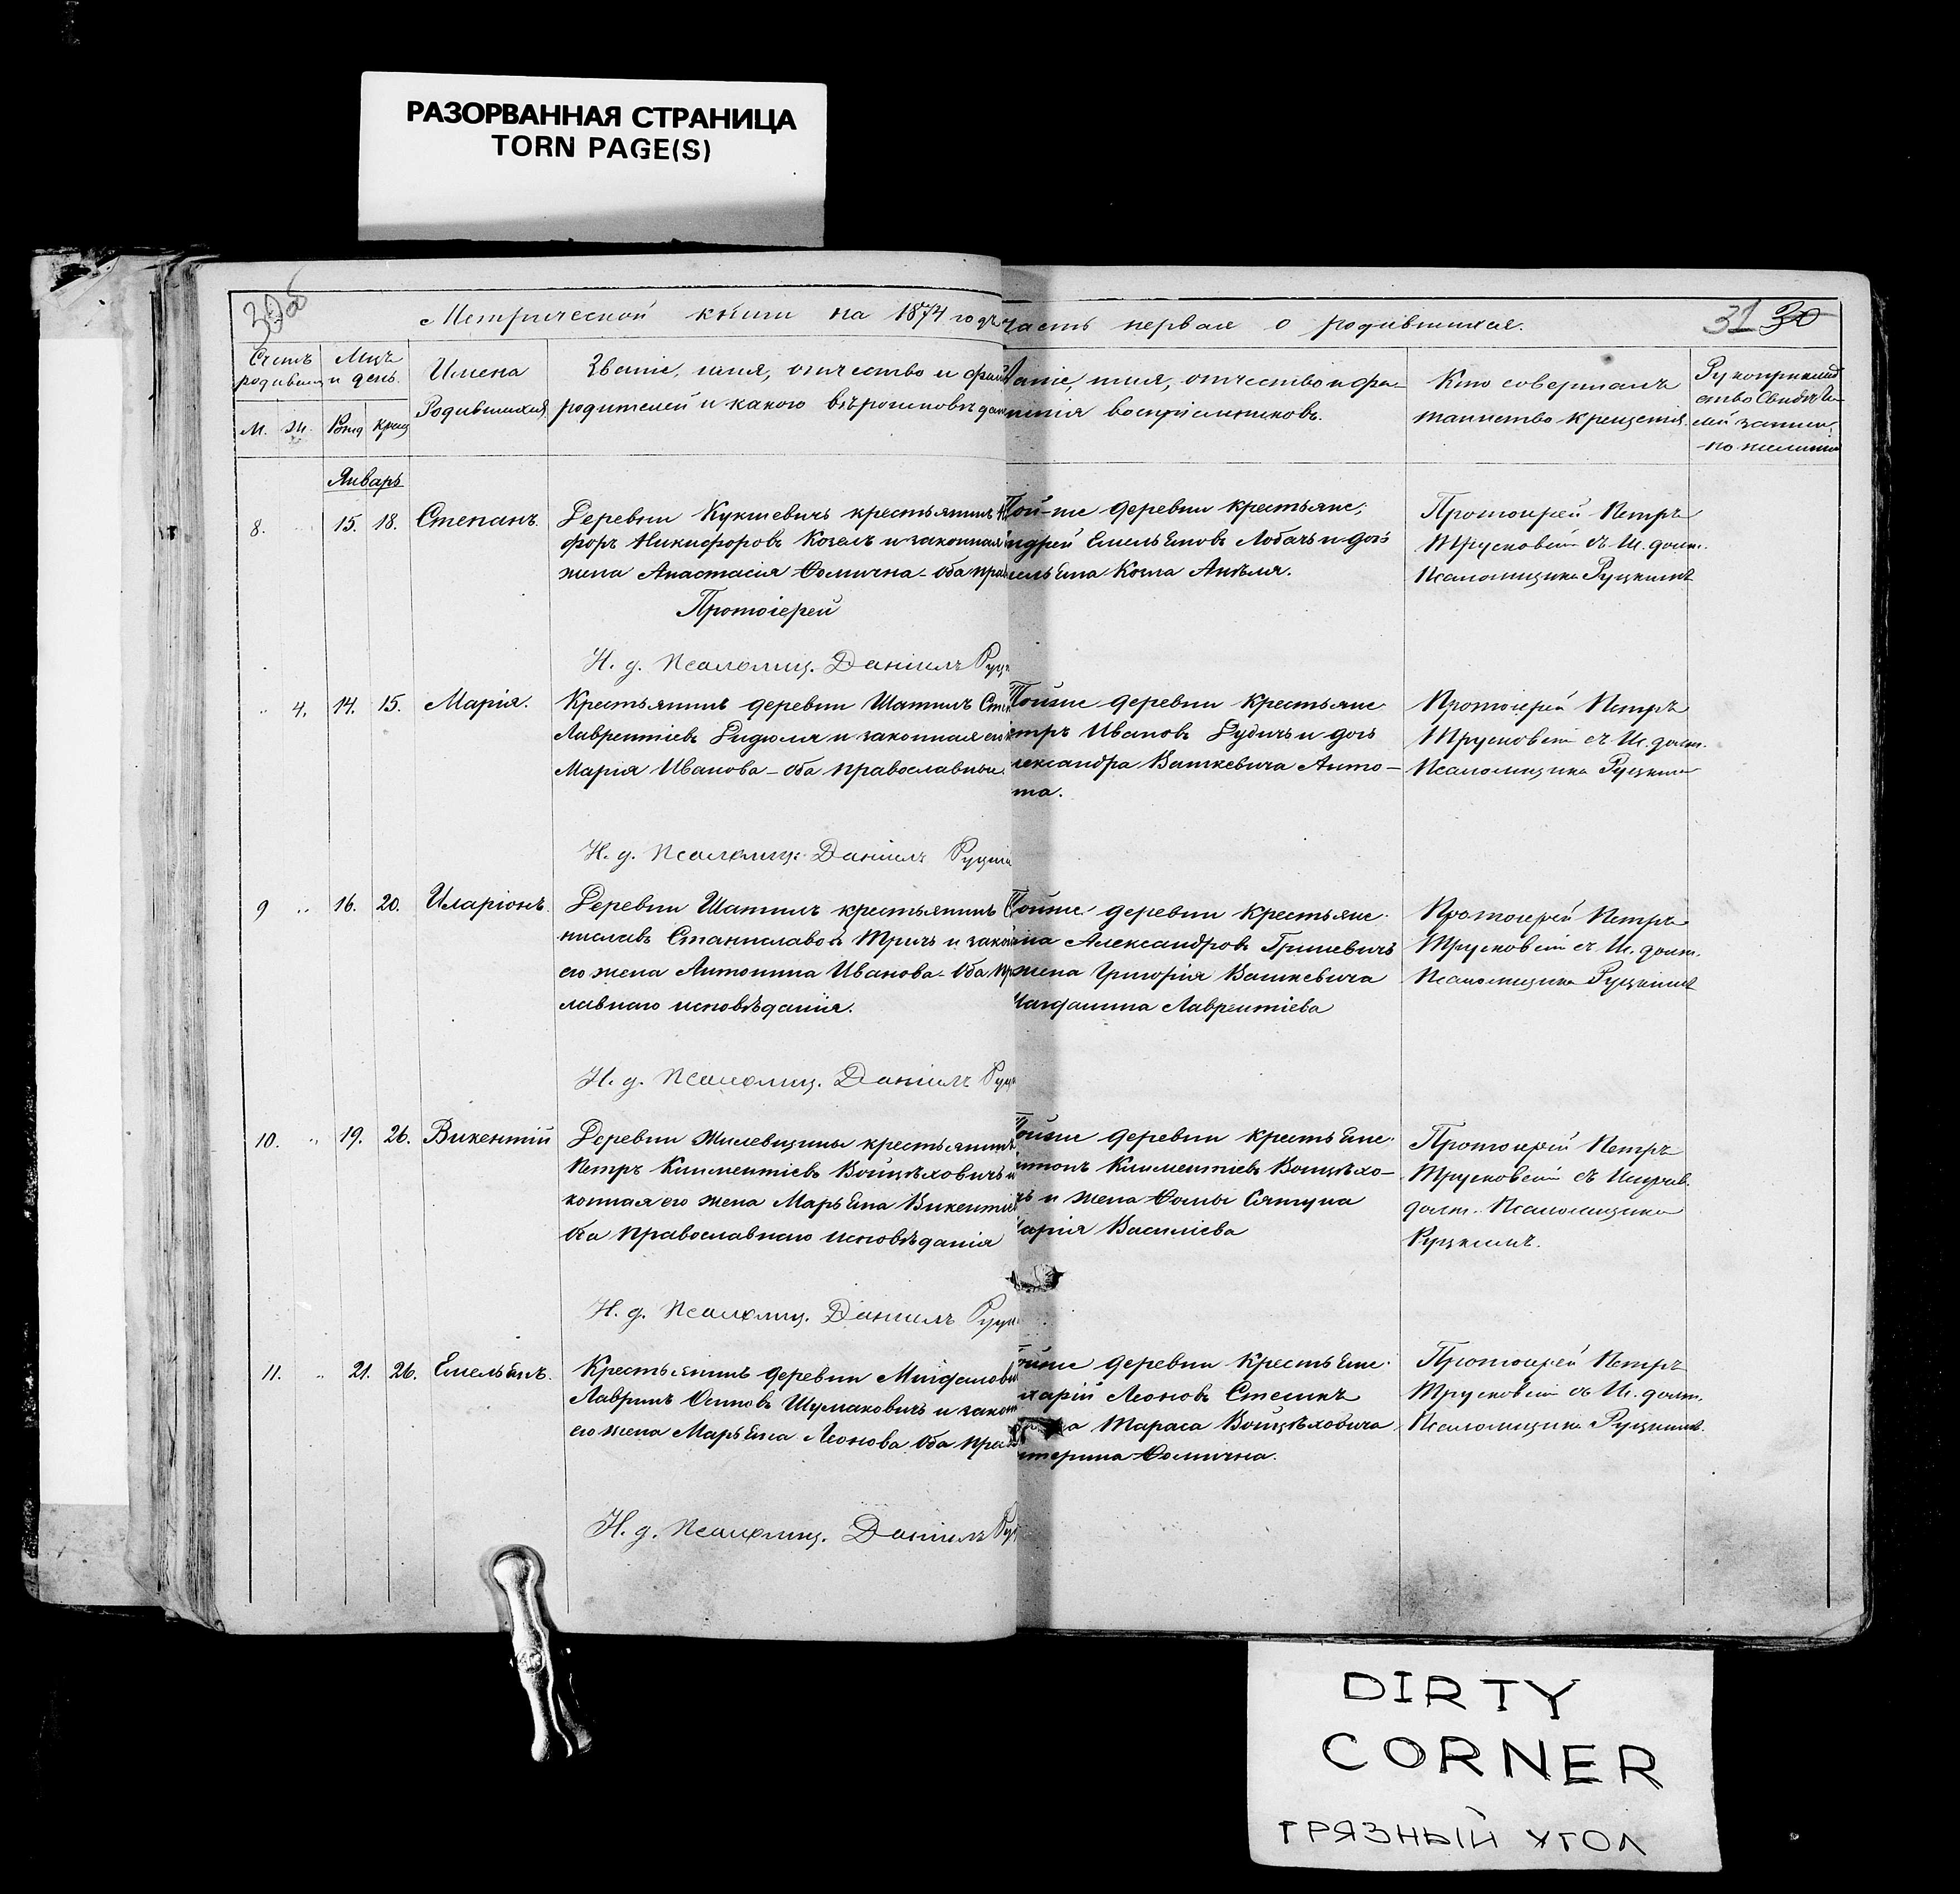 РАЗОРВАННАЯ СТРАНИЦА
TORN PAGE(S)
30об
Метрической книги на 1874 годъ
часть первая о родившихся.
31 30
Счетъ родившихся
Мцъ и день.
Имена
Родившихся
Званіе, имя, отчество и фам
родителей и какого вѣроисповѣдан
аніе, имя, отчество и фа-
милія воспріемниковъ.
Кто совершалъ
таинство крещенія.
М. Ж. Рожд Крещ
Январь
8. 15. 18. Степанъ.
Деревни Кукшевичъ крестьянинъ
форъ Никифоровъ Козелъ и законная
жена Анастасія Ѳомична - оба прав
Протоіерей
И. д. Псаломщ. Даніилъ Руц
Той-же деревни крестьяне:
ндрей Емельяновъ Лобачъ и дочь
мельяна Козла Анѣля.
Протоіерей Петръ
Трусковскій съ И. долж.
Псаломщика Руцкимъ
4. 14. 15. Марія.
Крестьянинъ деревни Шатилъ
Лаврентіевъ Дидюля и законная его
Марія Иванова - оба православные
И. д. Псаломщ. Даніилъ Руцкі
Тойже деревни крестьяне
етръ Ивановъ Дудичъ и дочь
лександра Вашкевича Анто-
на.
Протоіерей Петръ
Трусковскій съ И. долж.
Псаломщика Руцким
9 16. 20. Иларіонъ.
Деревни Шатилъ крестьянинъ С
ниславъ Станиславовъ Тричъ и закон
его жена Антонина Иванова - Оба пр
славнаго исповѣданія.
И. д. Псаломщ. Даніилъ Руц
Тойже деревни крестьяне.
Александровъ Гришевичъ
жена Григорія Вашкевича
Магдалина Лаврентіева
Протоіерей Петръ
Трусковскій съ И. долж.
Псаломщика Руцкимъ
10. 19. 26. Викентій
Деревни Жилевщины крестьянинъ
Петръ Климентіевъ Войцѣховичъ и
конная его жена Марьяна Викентіе
Оба православнаго исповѣданія
И. д. Псаломщ. Даніилъ Руц
Тойже деревни крестьяне.
нтонъ Климентіевъ Войцѣхо-
чъ и жена Ѳомы
арія Василіева
Протоіерей Петръ
Трусковскій съ Исправ.
долж. Псаломщика
Руцкимъ.
11. 21. 26. Емельянъ.
Крестьянинъ деревни
Лавринъ Осиповъ Шумаковичъ и закон
его жена Марьяна Леонова Оба прав
И. д. Псаломщ. Даніилъ Ру
ойже деревни крестьяне.
харій Леоновъ
Тараса Войцѣховича
терина Ѳомична.
Протоіерей Петръ
Трусковскій съ И. долж.
Псаломщика Руцкимъ.
DIRTY
CORNER
ГРЯЗНЫЙ УГОЛ